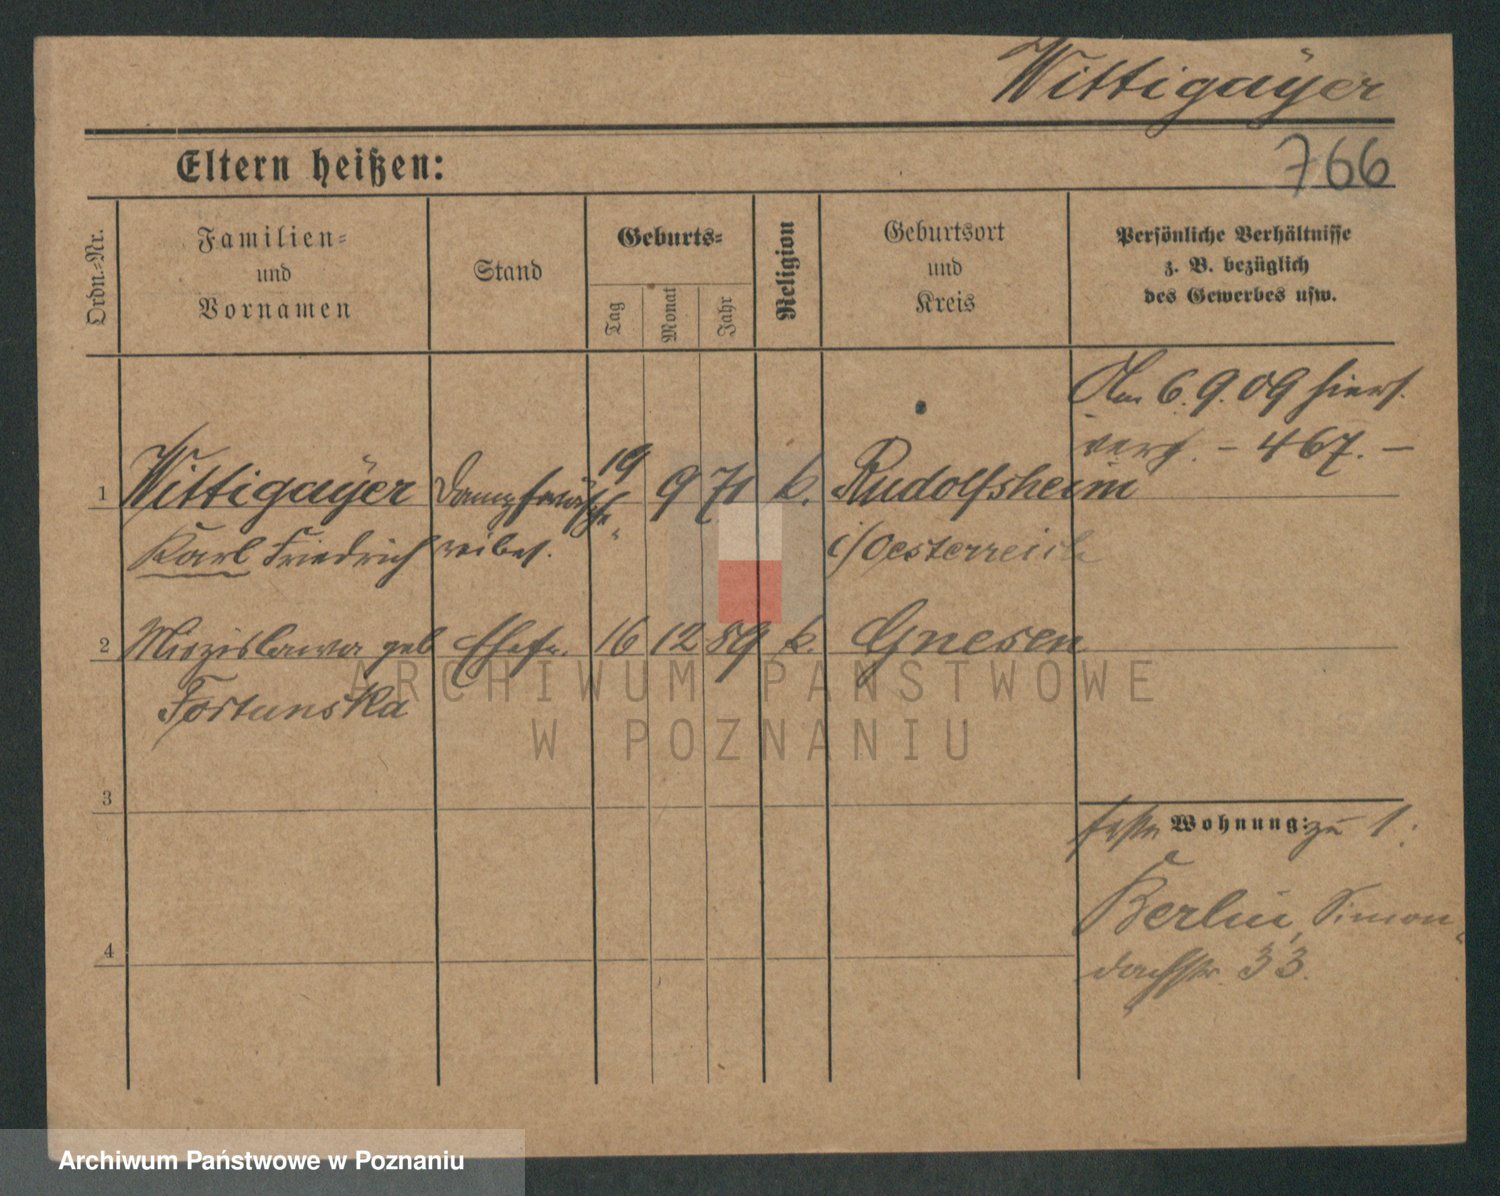 Wittigayer
766
Eltern heißen:
Ordn.-Nr.
Familien-
und
Vornamen
Stand
Geburts-
Tag
Monat
Jahr
Religion
Geburtsort
und
Kreis
Persönliche Verhältnisse
z. B. bezüglich
des Gewerbes usw.
Am 6.9.09 hier
- 467. -
1 Wittigayer 19 9 71 k. Rudolfsheim
Karl Friedrich i/Oesterreich
2 Miezislawa geb Ehefr. 16 12 89 k. Gnesen
Fortunska
3
feste Wohnung: zu 1.
Berlin, Simon-
4
dachstr. 33.
ARCHIWUM PAŃSTWOWE
W POZNANIU
Archiwum Państwowe w Poznaniu